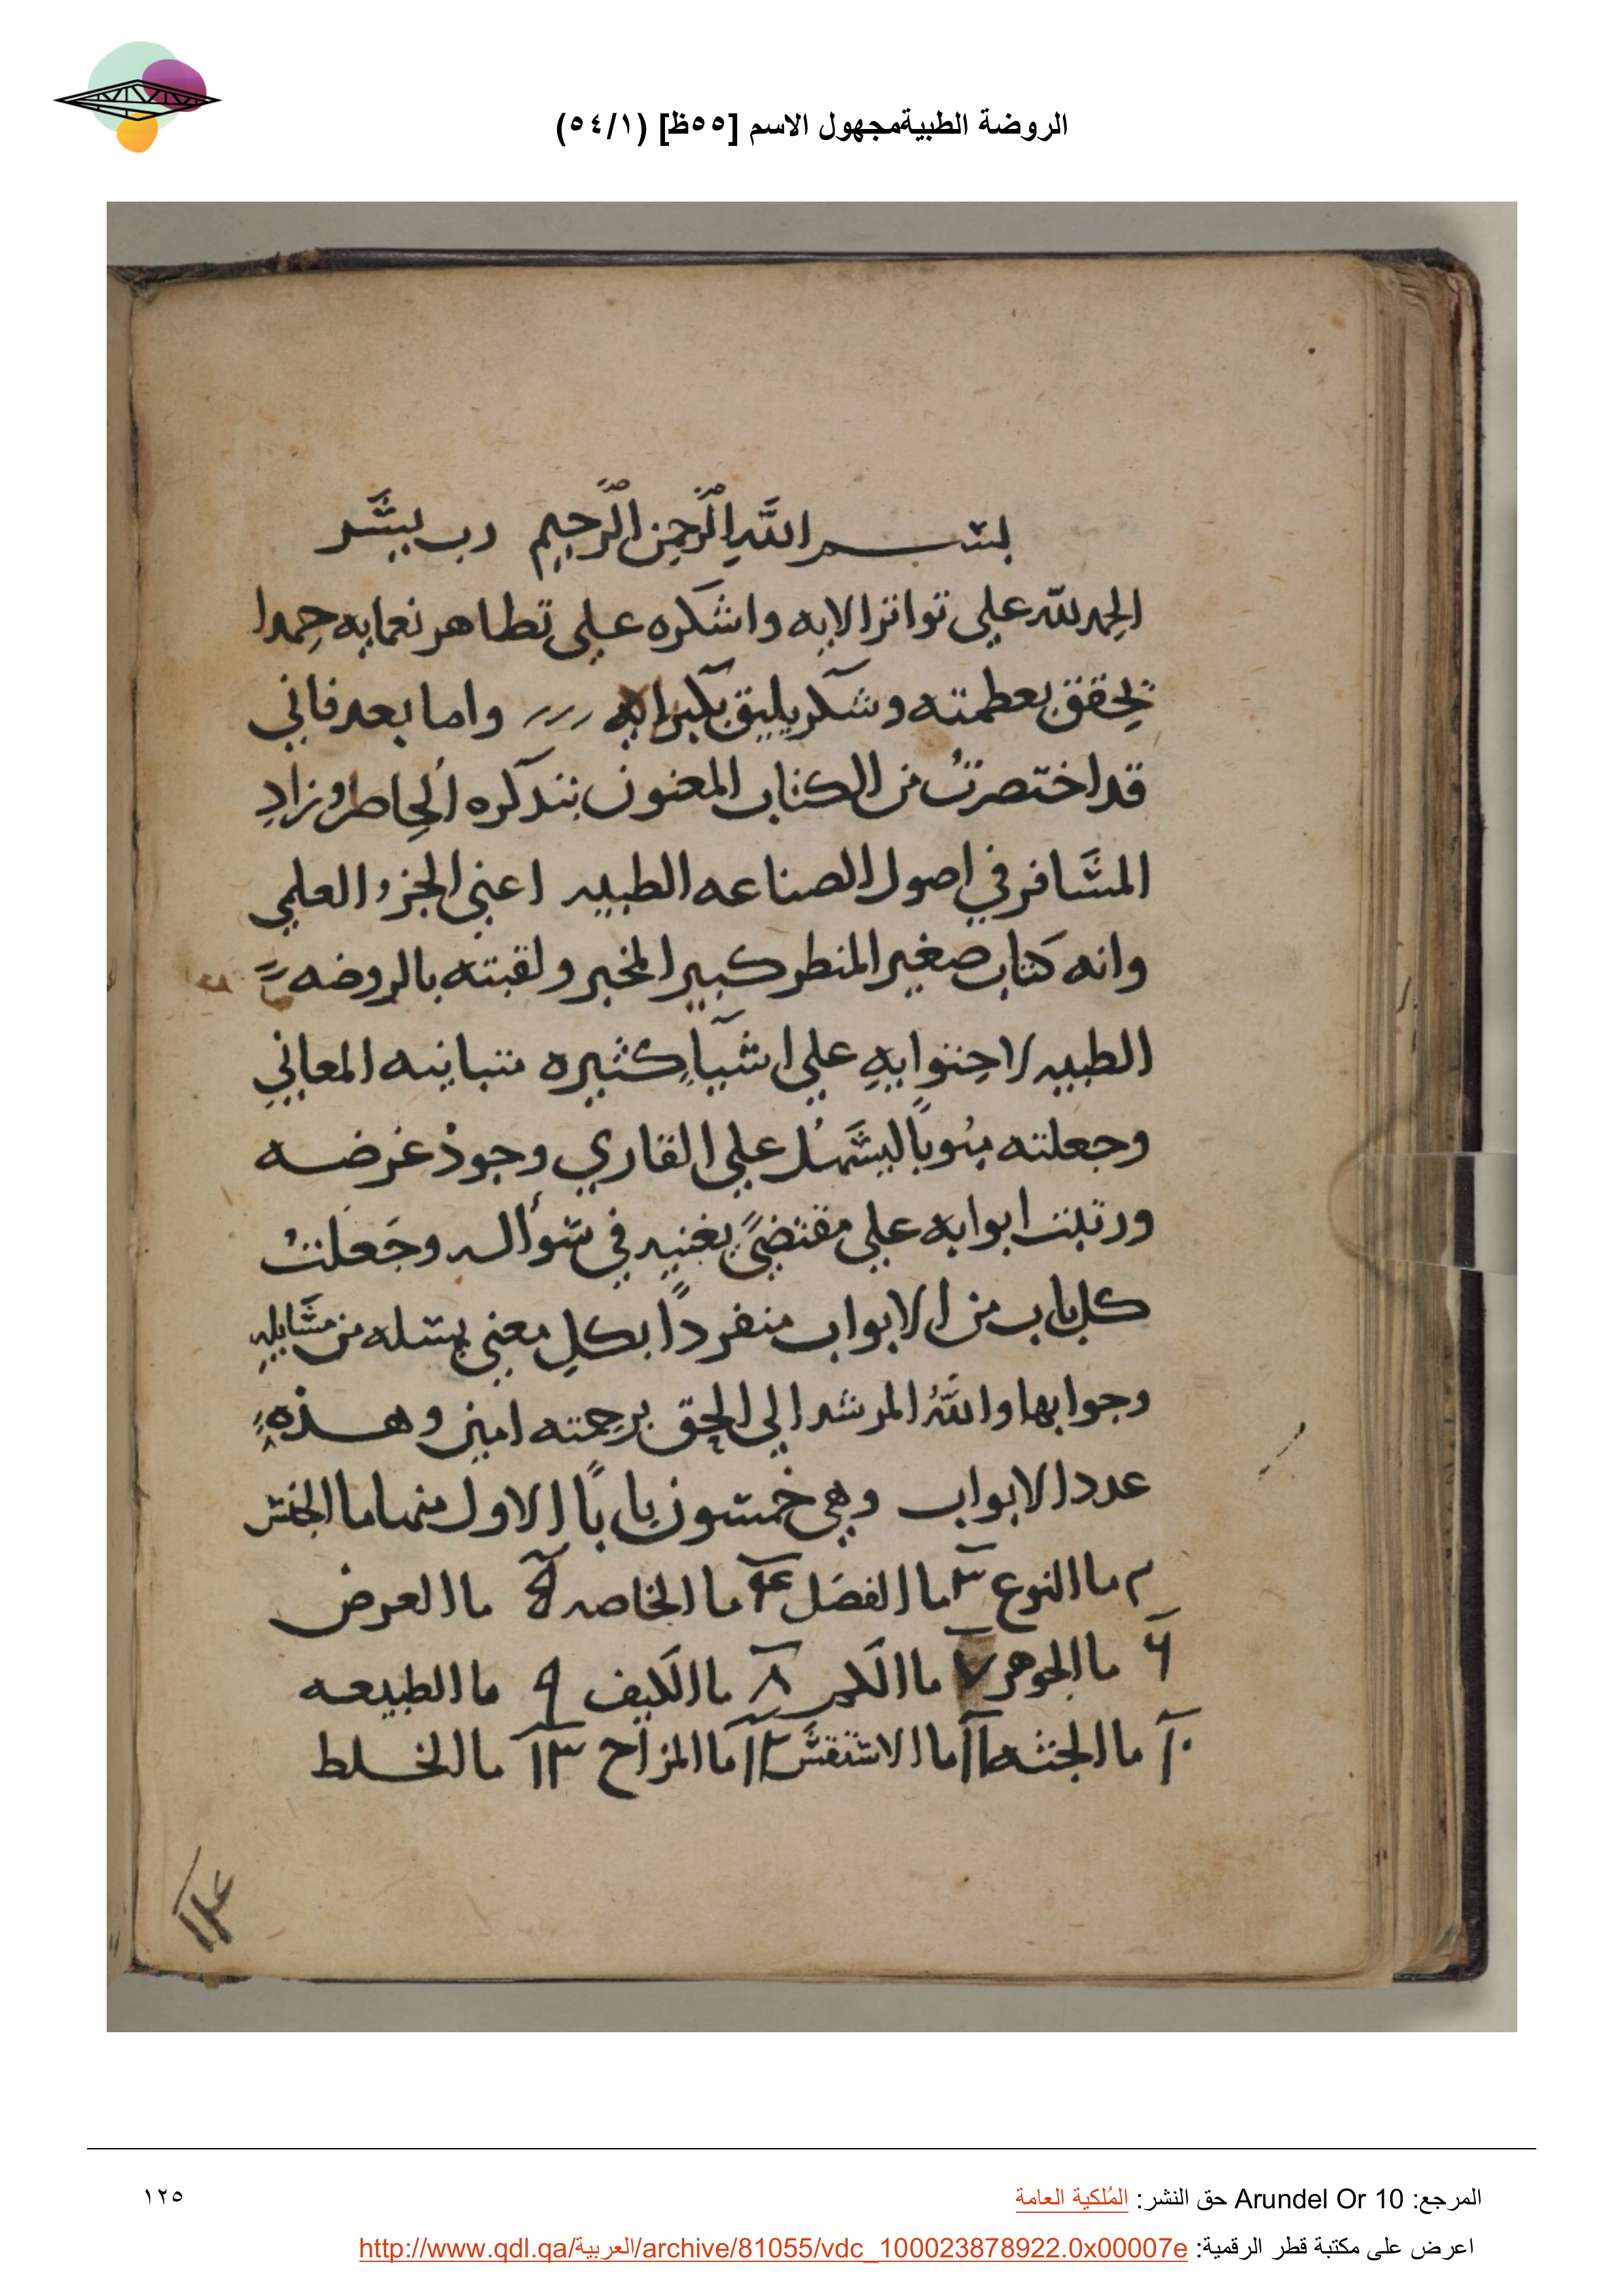 الروضة الطبيةمجهول الاسم [٥٥ظ] (٥٤/١)
بسم اللَّهِ الرَّحمنِ الرَّحيم رب يسَّر
الحمد للّه علي تواتر الايه واشكره علي تظاهر نعمايه حمدا
يحقق بعظمته وشكر يليق بكبرايه واما بعد فاني
قد اختصرتُ من الكتاب المعنون بتذكره الحاضر وزادِ
المسَافر في اصول الصناعه الطبيه اعني الجزء العلمي
وانه كتاب صغير المنظر كبير المخبر ولقبته بالروضه
الطبيه لاحتوايهِ علي اشيآءٍ كثيره متباينه المعاني
وجعلته مبوباً ليسَهُل علي القاري وجود غرضه
ورتبت ابوابه علي مقتضيً يغنيه في سوأاله وجَعَلتُ
كل باب من الابواب منفردًا بكلِ معني يسله من مسَايلهِ
وجوابها واللَّهُ المرشد الي الحق برحمته امين وهذه
عدد الابواب وهي خمسون باباً الاول منها ما الجنس
٢ ما النوع ٣ ما الفصَل ٤ ما الخاصه ٥ ما العرض
٦ ما الجوهر ٧ ما الكم ٨ ما الكيف ٩ ما الطبيعه
١٠ ما الجثه ١١ ما الاستقسّ ١٢ ما المزاج ١٣ ما الخلط
المرجع: Arundel Or 10 حق النشر: المُلكية العامة
١٢٥
اعرض على مكتبة قطر الرقمية: http://www.qdl.qa/العربية/archive/81055/vdc_100023878922.0x00007e